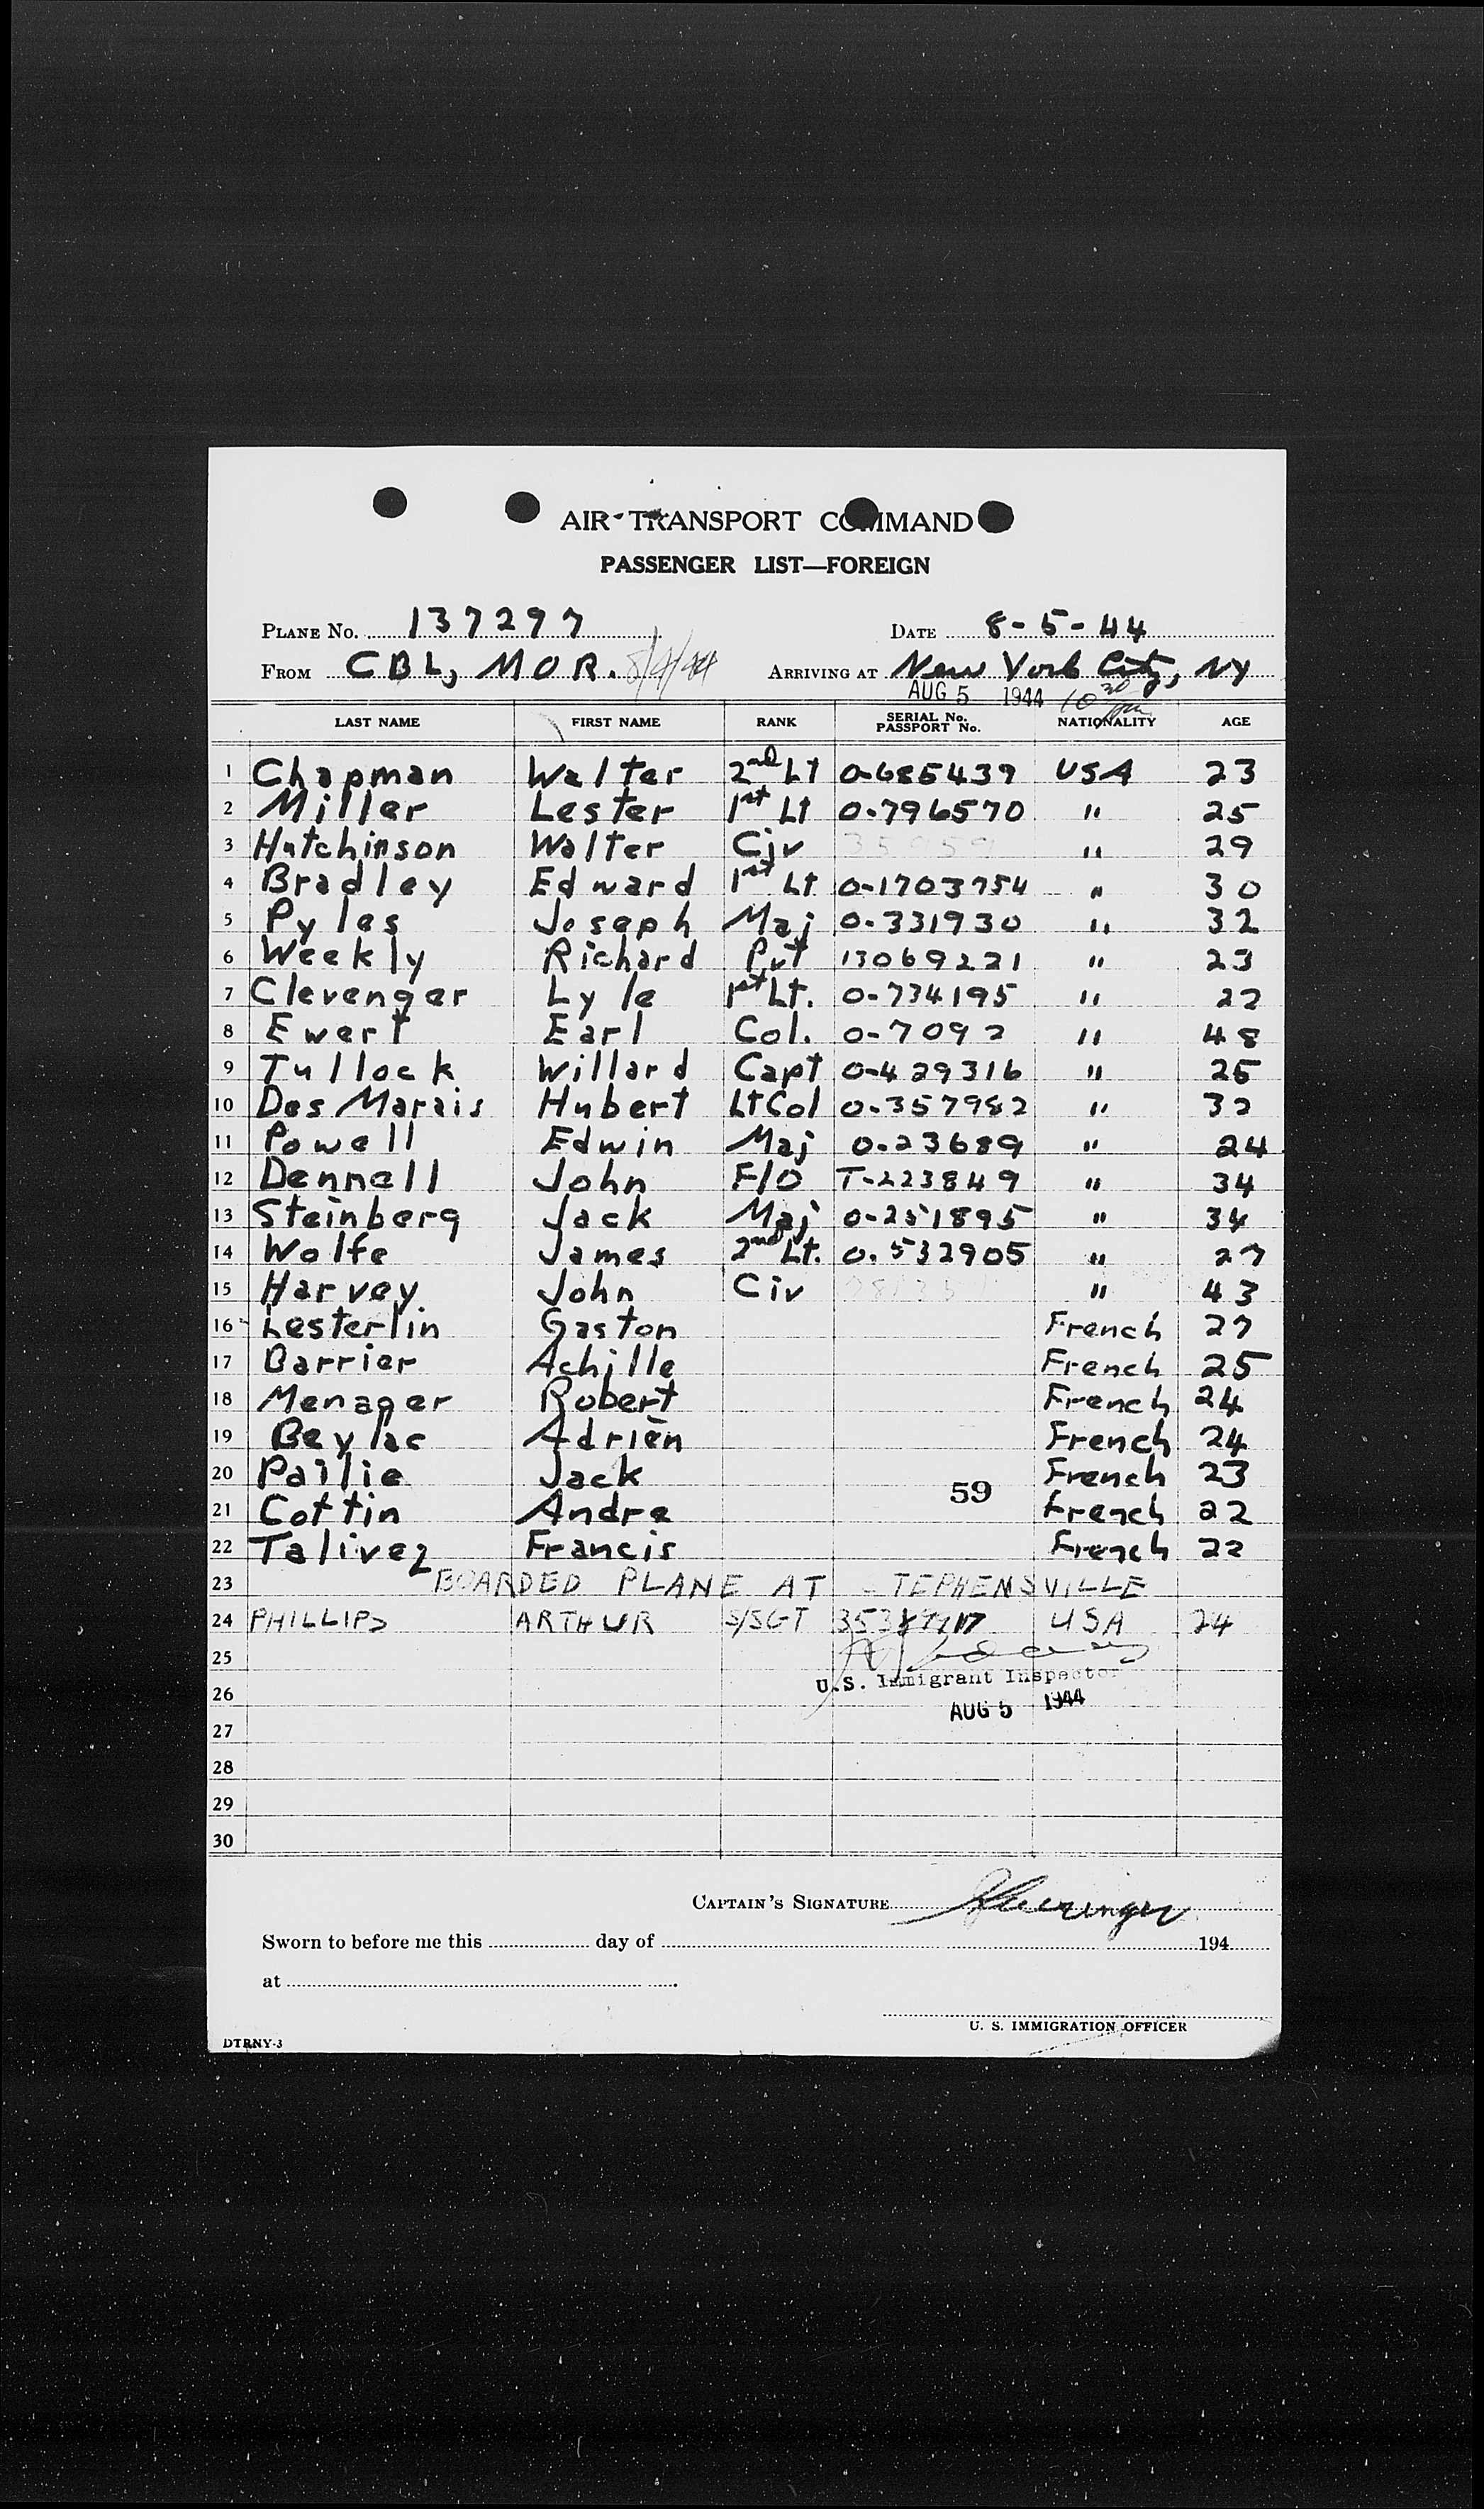 AIR TRANSPORT COMMAND
PASSENGER LIST—FOREIGN
PLANE NO. 137297 DATE 8-5-44
FROM CBL, MOR. 8/4/44 ARRIVING AT New York City, NY
AUG 5 1944 10 30 pm
LAST NAME FIRST NAME RANK SERIAL No. PASSPORT No. NATIONALITY AGE
1 Chapman Walter 2nd Lt 0-685439 USA 23
2 Miller Lester 1st Lt 0-796570 " 25
3 Hutchinson Walter Civ " 29
4 Bradley Edward 1st Lt 0-1703754 " 30
5 Pyles Joseph Maj 0-331930 " 32
6 Weekly Richard Pvt 13069221 " 23
7 Clevenger Lyle 1st Lt. 0-734195 " 22
8 Ewert Earl Col. 0-7092 " 48
9 Tullock Willard Capt 0-429316 " 25
10 Des Marais Hubert Lt Col 0-357982 " 32
11 Powell Edwin Maj 0-23689 " 24
12 Dennell John F/O T-223849 " 34
13 Steinberg Jack Maj 0-251895 " 34
14 Wolfe James 2nd Lt. 0-532905 " 27
15 Harvey John Civ " 43
16 Lesterlin Gaston French 27
17 Barrier Achille French 25
18 Menager Robert French 24
19 Beylac Adrien French 24
20 Pailie Jack French 23
59
21 Cottin Andre French 22
22 Talivez Francis French 22
23 BOARDED PLANE AT STEPHENSVILLE
24 PHILLIPS ARTHUR S/SGT USA 24
25
U.S. Immigrant Inspector
26
AUG 5 1944
27
28
29
30
CAPTAIN'S SIGNATURE
Sworn to before me this day of 194
at
U. S. IMMIGRATION OFFICER
DTRNY-3